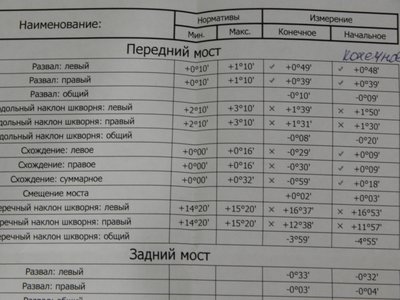 Наименование: Нормативы Измерение
Мин. Макс. Конечное Начальное
Передний мост конечное
Развал: левый +0°10' +1°10' ✓ +0°49' ✓ +0°48'
Развал: правый +0°10' +1°10' ✓ +0°39' ✓ +0°39'
Развал: общий -0°10' -0°09'
одольный наклон шкворня: левый +2°10' +3°10' × +1°39' × +1°50'
одольный наклон шкворня: правый +2°10' +3°10' × +1°31' × +1°30'
одольный наклон шкворня: общий -0°08' -0°20'
Схождение: левое +0°00' +0°16' × -0°29' ✓ +0°09'
Схождение: правое +0°00' +0°16' × -0°30' ✓ +0°09'
Схождение: суммарное +0°00' +0°32' × -0°59' ✓ +0°18'
Смещение моста +0°02' +0°03'
еречный наклон шкворня: левый +14°20' +15°20' × +16°37' × +16°53'
еречный наклон шкворня: правый +14°20' +15°20' × +12°38' × +11°57'
еречный наклон шкворня: общий -3°59' -4°55'
Задний мост
Развал: левый -0°33' -0°32'
Развал: правый -0°03' -0°04'